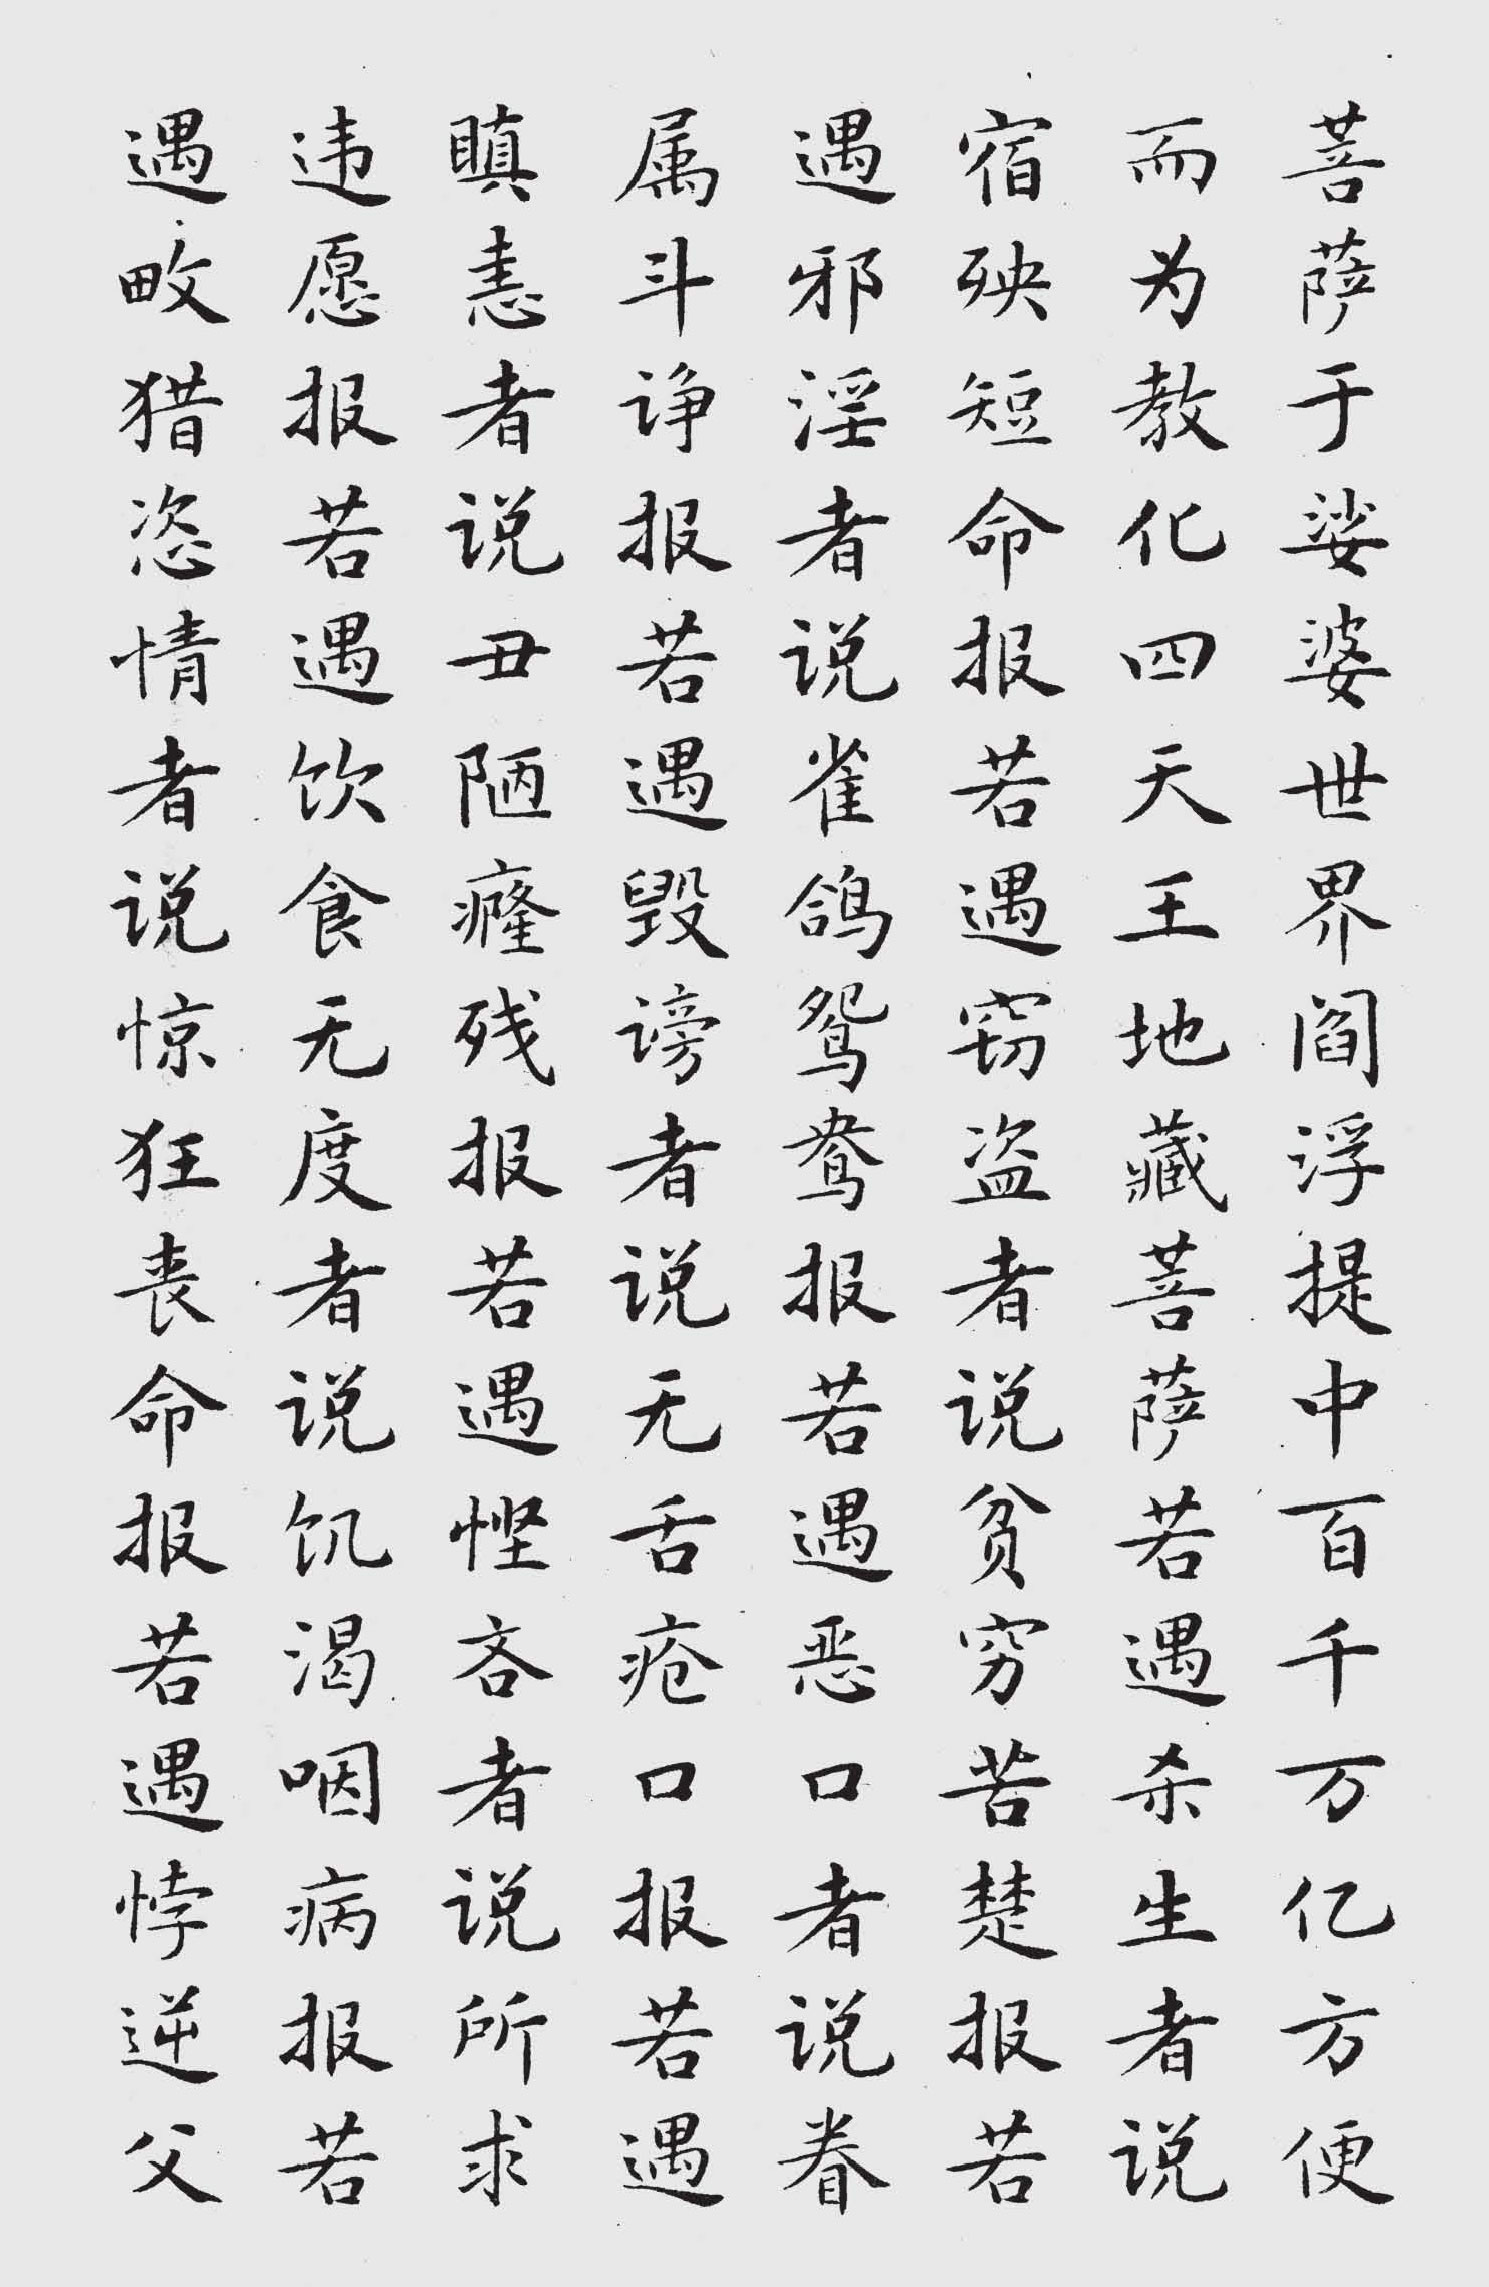 菩萨于娑婆世界阎浮提中百千万亿方便
而为教化四天王地藏菩萨若遇杀生者说
宿殃短命报若遇窃盗者说贫穷苦楚报若
遇邪淫者说雀鸽鸳鸯报若遇恶口者说眷
属斗诤报若遇毁谤者说无舌疮口报若遇
瞋恚者说丑陋癃残报若遇悭吝者说所求
违愿报若遇饮食无度者说饥渴咽病报若
遇畋猎恣情者说惊狂丧命报若遇悖逆父